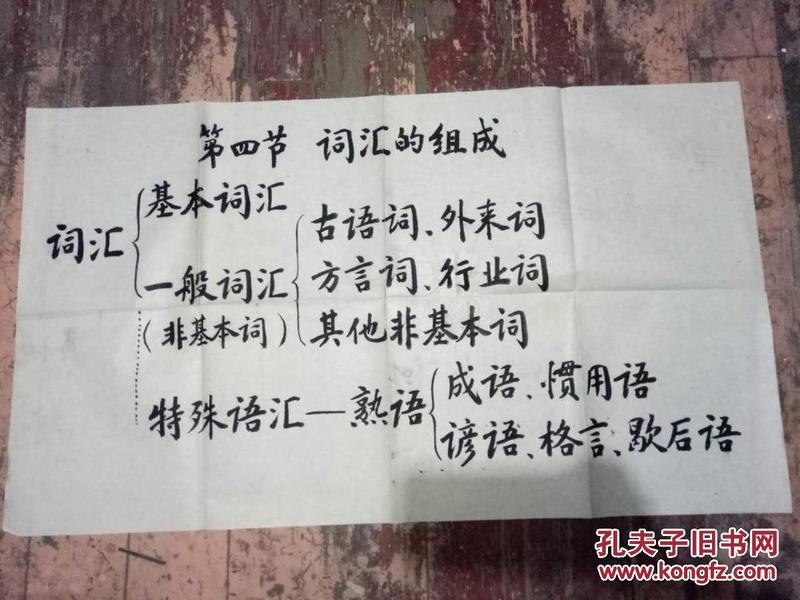 第四节 词汇的组成
基本词汇
词汇
古语词、外来词
一般词汇
方言词、行业词
(非基本词)
其他非基本词
特殊语汇—熟语
成语、惯用语
谚语、格言、歇后语
孔夫子旧书网
www.kongfz.com